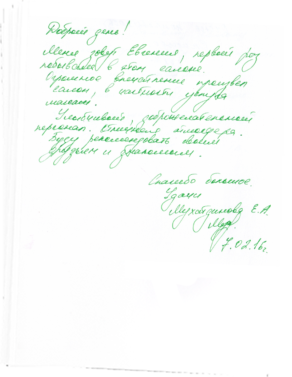 Добрый день!
Меня зовут Евгения, первый раз
побывала в этом салоне.
Огромное впечатление произвел
салон, в частности услуга
массаж.
Улыбчивый, доброжелательный
персонал. Отличная атмосфера.
Буду рекомендовать своим
друзьям и знакомым.
Спасибо большое.
Удачи
Е. А.
7.02.16г.